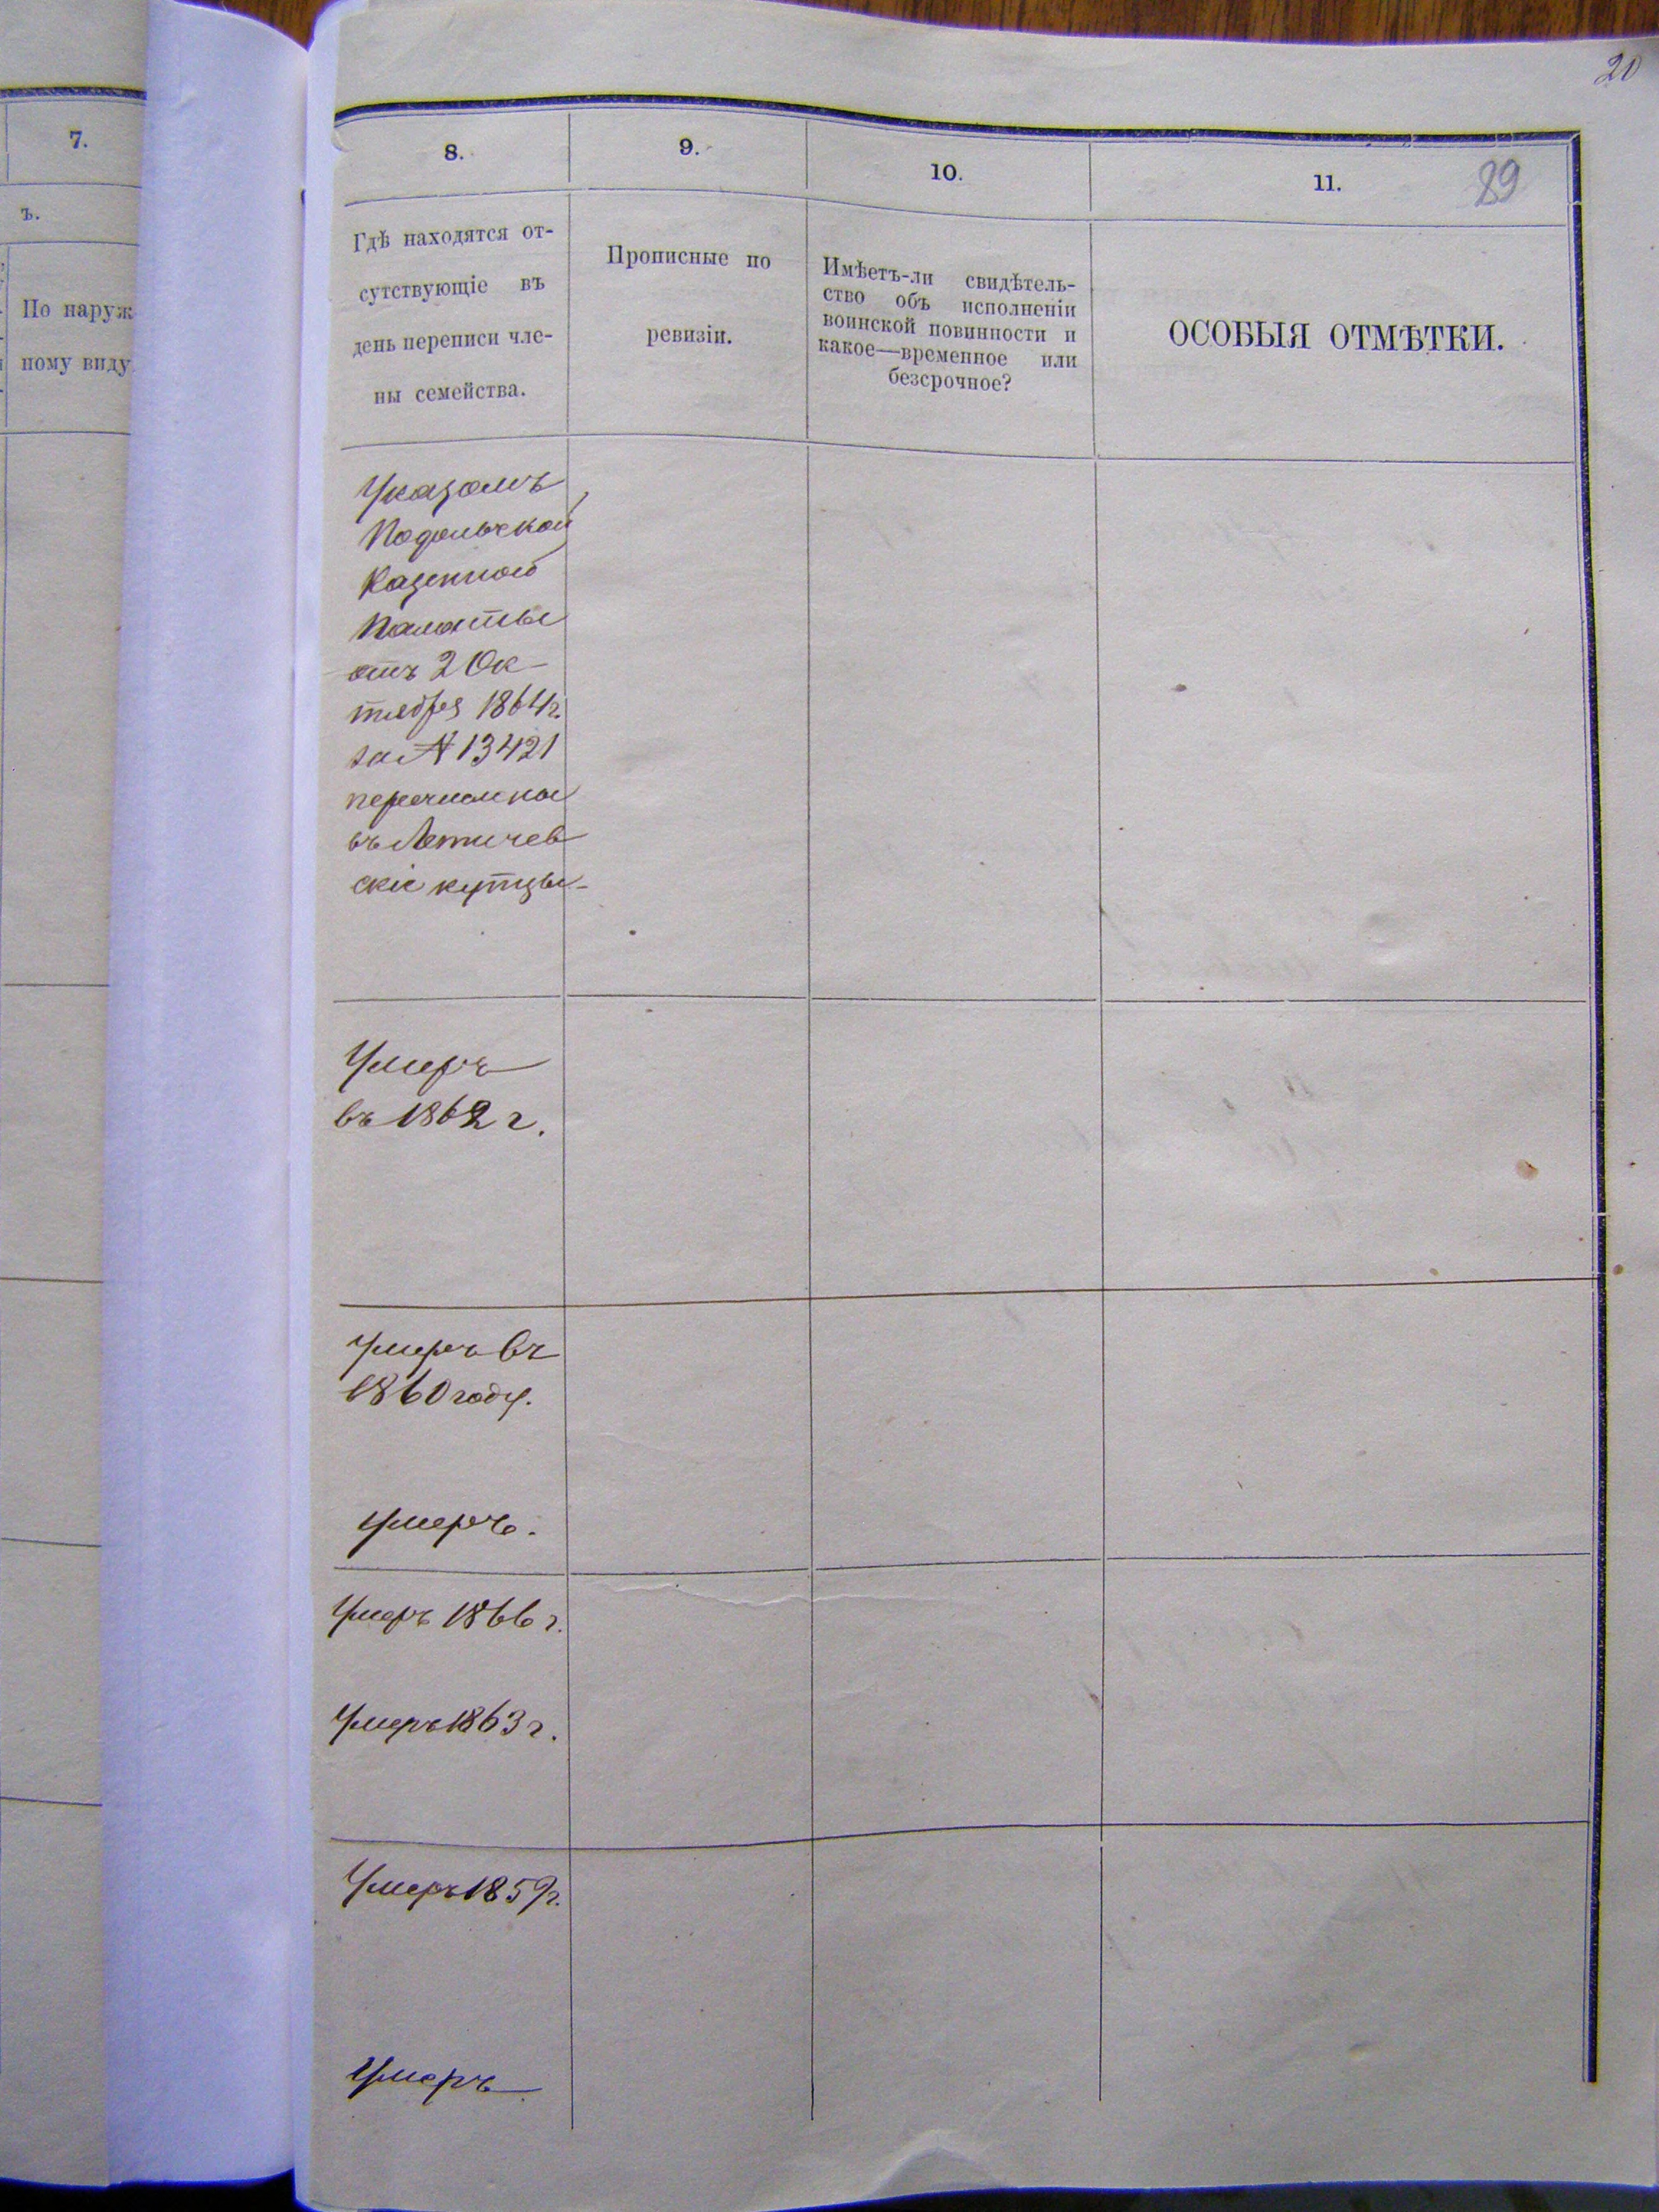 20
7.
8.
9.
10.
11.
89
ъ.
По наруж
ному виду
Гдѣ находятся от-
сутствующіе въ
день переписи чле-
ны семейства.
Прописные по
ревизіи.
Имѣетъ-ли свидѣтель-
ство объ исполненіи
воинской повинности и
какое—временное или
безсрочное?
ОСОБЫЯ ОТМѢТКИ.
Указомъ
Подольской
Казенной
Палаты
отъ 2 Ок-
тября 1864г.
за № 13421
перечислены
въ Летичев
скіе купцы-
Умеръ
въ 1862 г.
Умеръ въ
1860 году.
Умеръ.
Умеръ 1866 г.
Умеръ 1863 г.
Умеръ 1859г.
Умеръ